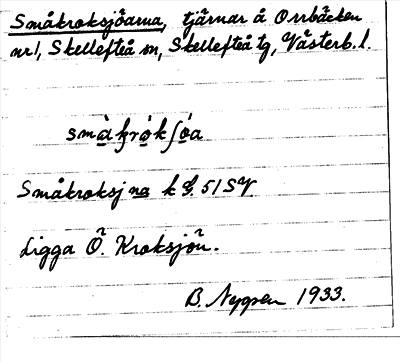 Småkroksjöarna, tjärnar å Orrbäcken
nr 1, Skellefteå sn, Skellefteå tg, Västerb. l.
småkrokſöa
Småkroksjna k 51 SV
Ligga Ö. Kroksjön.
B. Nygren 1933.